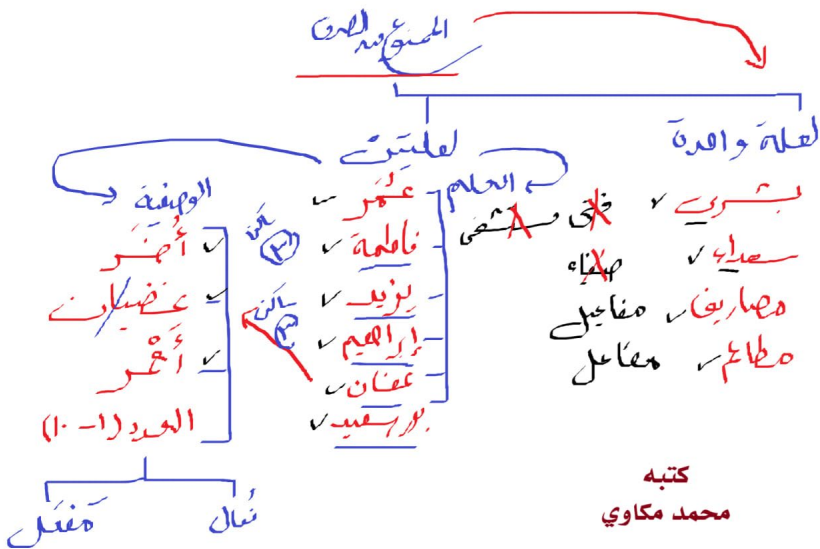 الممنوع من الصرف
لعلة واحدة
بشرى
فتى مستشفى
سعداء
صفاء
مصاريف مفاعيل
مطاعم مفاعل
لعلتين
العلام
عُمَر
فاطمة
يزيد
إبراهيم
عفان
بورسعيد
ساكن ٣
ساكن ٣
الوصفية
أُخَر
غضبان
أَحْمر
العدد (١-١٠)
فُعال
مَفعَل
كتبه
محمد مكاوي